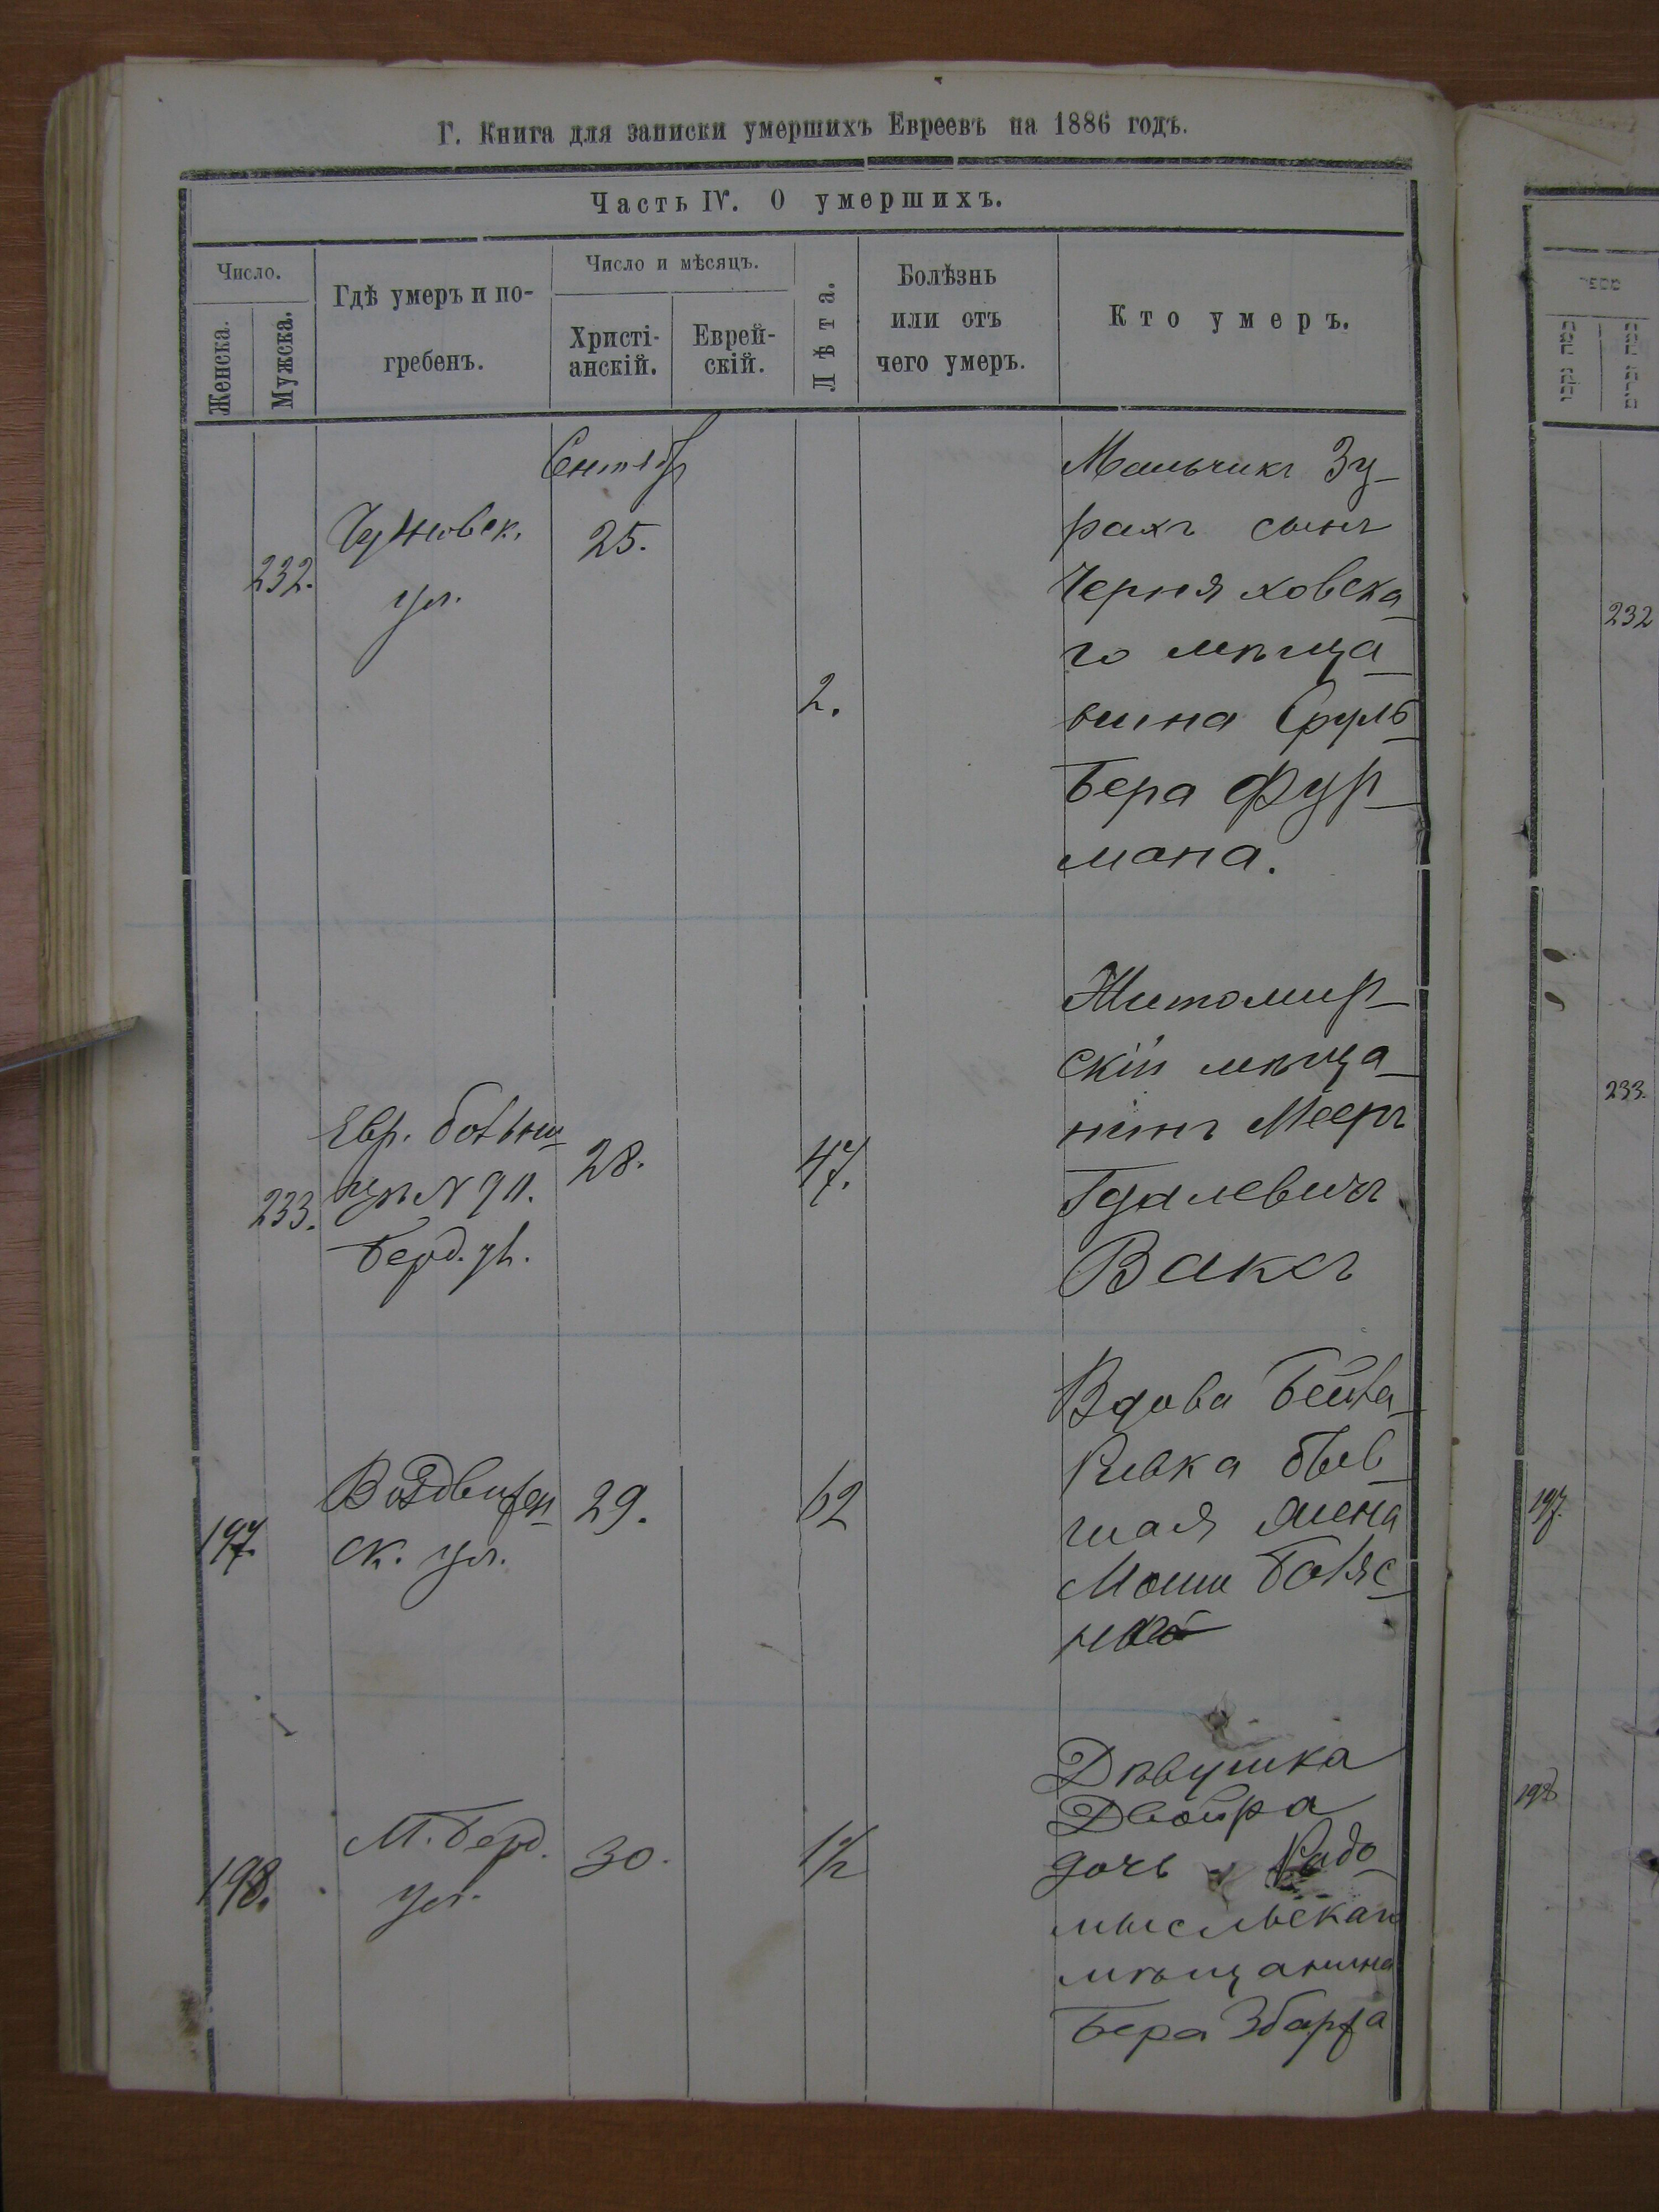 Г. Книга для записки умершихъ Евреевъ на 1886 годъ.
Часть IV. О умершихъ.
Число.
Женска.
Мужска.
Гдѣ умеръ и по-
гребенъ.
Число и мѣсяцъ.
Христі-
анскій.
Еврей-
скій.
Лѣта.
Болѣзнь
или отъ
чего умеръ.
Кто умеръ.
232.
Чудновск.
ул.
Сентябр
25.
2.
Мальчикъ Зу-
рахъ сынъ
Черняховска-
го мѣща-
нина Сруль-
Бера Фур-
мана.
233.
Евр. больни-
цѣ
Берд. ул.
28.
47.
Житомир-
скій мѣща-
нинъ Мееръ
Гдалевичъ
Ваксъ
197.
Воздвижен-
ск. ул.
29.
62
Вдова Бейла-
Ривка быв-
шая жена
Моши Боляс-
198.
М. Берд.
ул.
30.
1½
Дѣвушка
Двойра
дочь Радо-
мысльскаго
мѣщанина
Бера Збаржа
232
233.
197.
198